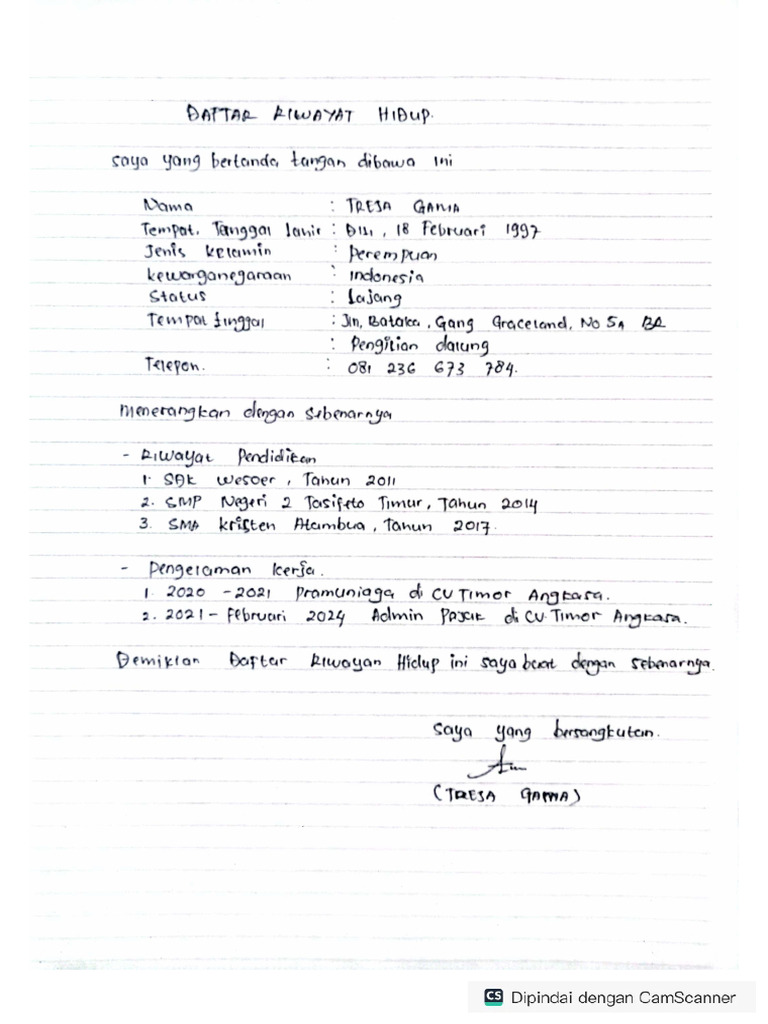 DAFTAR RIWAYAT HIDUP.
saya yang bertanda tangan dibawa ini
Nama : TRESA
Tempat, Tanggal lahir : Dili, 18 Februari 1997
Jenis kelamin : perempuan
kewarganegaraan : indonesia
Status : Lajang
Tempat tinggal : Jln, Bataka, Gang Graceland, No 5A
: Pengitian dalung
Telepon. : 081 236 673 784.
Menerangkan dengan sebenarnya
- Riwayat Pendidikan
1. SDK Wesoer, Tahun 2011
2. SMP Negeri 2 Tasifeto Timur, Tahun 2014
3. SMA Kristen Atambua, Tahun 2017.
- Pengelaman kerja.
1. 2020 - 2021 Pramuniaga di CV Timor Angkasa.
2. 2021 - Februari 2024 Admin Pajak di CV. Timor Angkasa.
Demikian Daftar Riwayan Hidup ini saya buat dengan sebenarnya.
Saya yang bersangkutan.
(TRESA
CS Dipindai dengan CamScanner